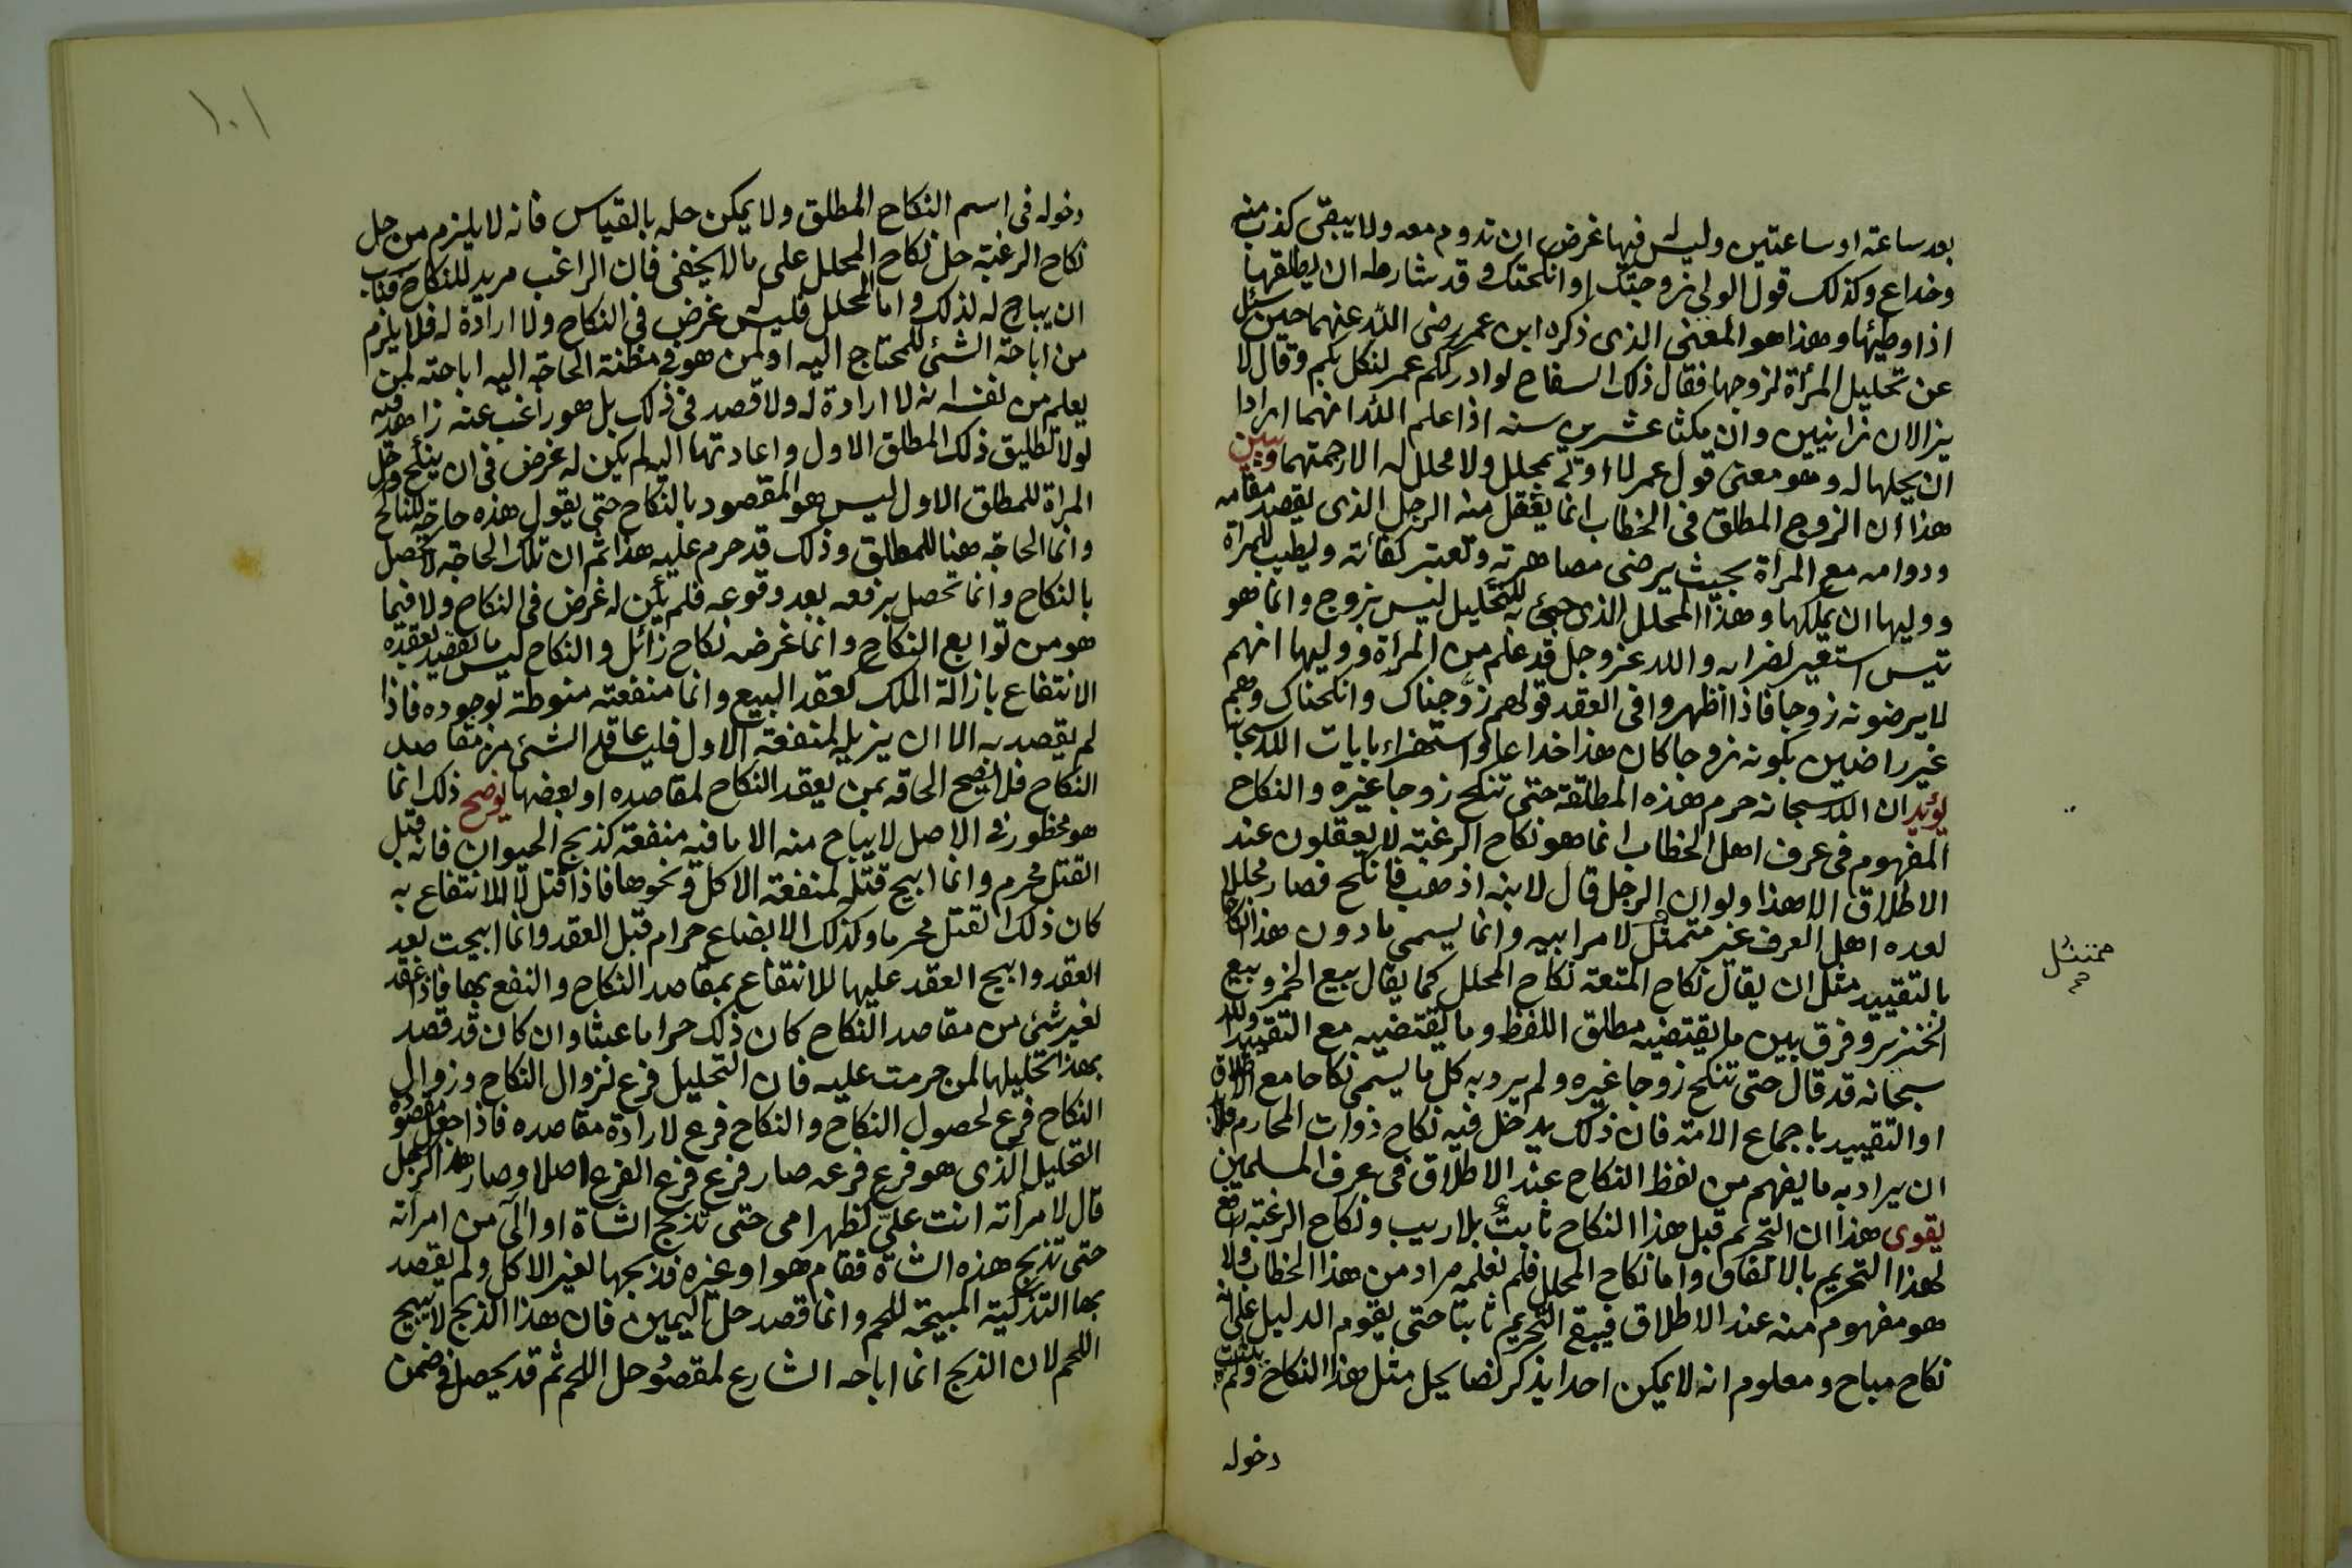 بعد ساعة او ساعتين وليس فيها غرض ان تدوم معه ولا يبقى كذب منه
وخداع وكذلك قول الولي زوجتك او انكحتك وقد شارطه ان يطلقها
اذا وطئها وهذا هو المعنى الذى ذكره ابن عمر رضى الله عنهما حين سئل
عن تحليل المرأة لزوجها فقال ذلك السفاح لو ادرككم عمر لنكل بكم وقال لا
يزالان زانيين وان مكثا عشرين سنه اذا علم الله انهما ارادا
ان يحلها له وهو معنى قول عمر لا اوتى بمحلل ولا محلل له الا رجمتهما ويبين
هذا ان الزوج المطلق فى الخطاب انما يعقل منه الرجل الذى يقصد مقامه
ودوامه مع المرأة بحيث يرضى مصاهرته وتعتبر كفائته ويطيب للمرأة
ووليها ان يملكها وهذا المحلل الذى جئ به للتحليل ليس بزوج وانما هو
تيس استعير لضرابه والله عز وجل قد علم من المرأة ووليها انهم
لا يرضونه زوجا فاذا اظهروا فى العقد قولهم زوجناك وانكحناك وهم
غير راضين بكونه زوجا كان هذا خداعا واستهزاء بايات الله سبحانه
يؤيد ان الله سبحانه حرم هذه المطلقة حتى تنكح زوجا غيره والنكاح
المفهوم فى عرف اهل الخطاب انما هو نكاح الرغبة لا يعقلون عند
الاطلاق الا هذا ولو ان الرجل قال لابنه اذهب فانكح فصار محللا
لعده اهل العرف غير متمثل لامر ابيه وانما يسمى ما دون هذا النكاح
بالتقييد مثل ان يقال نكاح المتعة نكاح المحلل كما يقال بيع الخمر وبيع
الخنزير وفرق بين ما يقتضيه مطلق اللفظ وما يقتضيه مع التقييد والله
سبحانه قد قال حتى تنكح زوجا غيره ولم يرد به كل ما يسمى نكاحا مع الاطلاق
او التقييد باجماع الامة فان ذلك يدخل فيه نكاح ذوات المحارم فلا بد
ان يراد به ما يفهم من لفظ النكاح عند الاطلاق فى عرف المسلمين
يقوى هذا ان التحريم قبل هذا النكاح ثابت بلا ريب ونكاح الرغبة رافع
لهذا التحريم بالاتفاق واما نكاح المحلل فلم نعلمه مراد من هذا الخطاب ولا
هو مفهوم منه عند الاطلاق فيبقى التحريم ثابتا حتى يقوم الدليل على انه
نكاح مباح ومعلوم انه لا يمكن احدا يذكر نصا يحل مثل هذا النكاح ولم يثبت
دخوله
ممتثل
١٠١
دخوله فى اسم النكاح المطلق ولا يمكن حله بالقياس فانه لا يلزم من حل
نكاح الرغبة حل نكاح المحلل على ما لا يخفى فان الراغب مريد للنكاح فناسب
ان يباح له لذلك واما المحلل فليس غرض فى النكاح ولا ارادة له فلا يلزم
من اباحة الشئ للمحتاج اليه او لمن هو فى مظنة الحاجة اليه اباحته لمن
يعلم من نفسه انه لا ارادة له ولا قصد فى ذلك بل هو راغب عنه زاهد فيه
لولا تطليق ذلك المطلق الاول واعادتها اليه لم يكن له غرض فى ان ينكح وحل
المرأة للمطلق الاول ليس هو المقصود بالنكاح حتى يقول هذه حاجة للناكح
وانما الحاجة هنا للمطلق وذلك قد حرم عليه هذا ثم ان تلك الحاجة لا تحصل
بالنكاح وانما تحصل برفعه بعد وقوعه فلم يكن له غرض فى النكاح ولا فيما
هو من توابع النكاح وانما غرضه نكاح زائل والنكاح ليس مما يقصد بعقده
الانتفاع بازالة الملك كعقد البيع وانما منفعته منوطة بوجوده فاذا
لم يقصد به الا ان يزيله لمنفعة الاول فليس عاقد الشئ من مقاصد
النكاح فلا يصح الحاقه بمن يعقد النكاح لمقاصده او بعضها يوضح ذلك انما
هو محظور فى الاصل لا يباح منه الا ما فيه منفعة كذبح الحيوان فانه قبل
القتل محرم وانما ابيح قتله لمنفعة الاكل ونحوها فاذا قتل لا للانتفاع به
كان ذلك القتل محرما وكذلك الابضاع حرام قبل العقد وانما ابيحت بعد
العقد وابيح العقد عليها للانتفاع بمقاصد النكاح والنفع بها فاذا عقد
لغير شئ من مقاصد النكاح كان ذلك حراما عبثا وان كان قد قصد
بهذا تحليلها لمن حرمت عليه فان التحليل فرع لزوال النكاح وزوال
النكاح فرع لحصول النكاح والنكاح فرع لارادة مقاصده فاذا جعل مقصوده
التحليل الذى هو فرع فرعه صار فرع فرع الفرع اصلا وصار هذا كرجل
قال لامرأته انت على كظهر امى حتى تذبح الشاة او آلى من امرأته
حتى تذبح هذه الشاة فقام هو او غيره فذبحها لغير الاكل ولم يقصد
بها التذكية المبيحة للحم وانما قصد حل اليمين فان هذا الذبح لا يبيح
اللحم لان الذبح انما اباحه الشارع لمقصود حل اللحم ثم قد يحصل فى ضمن